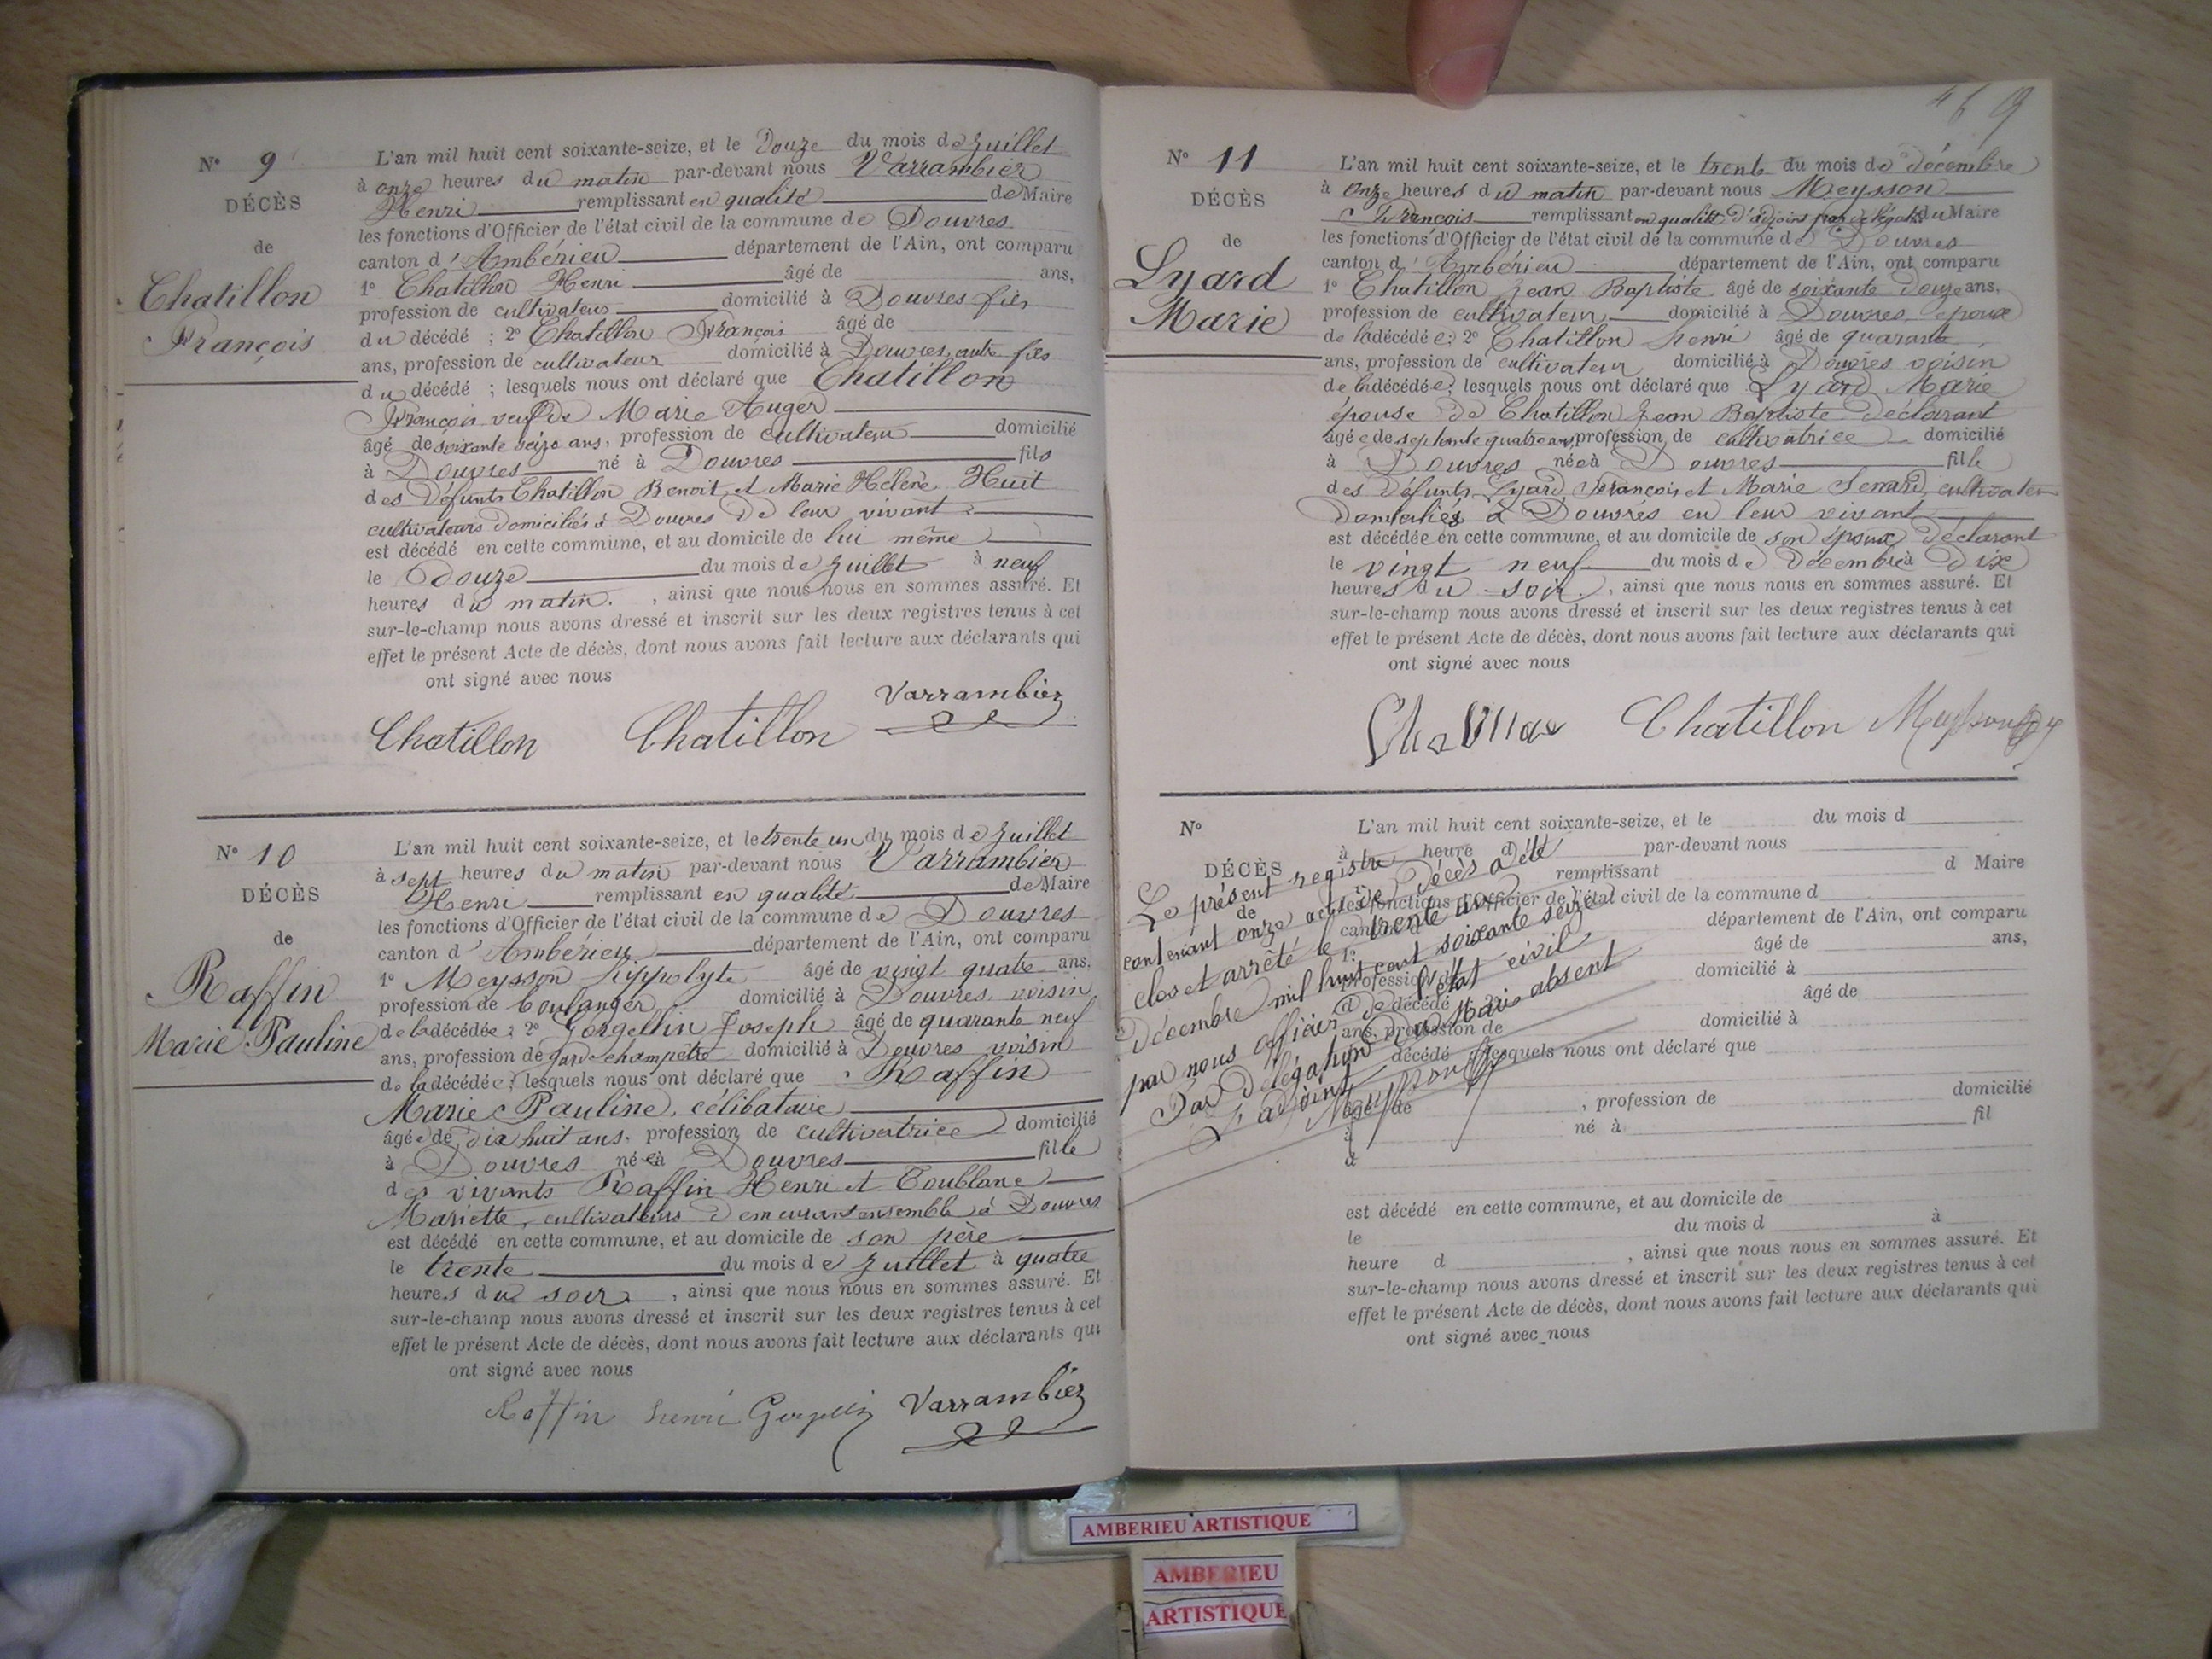 N° 9
DÉCÈS
de
Chatillon
François
L'an mil huit cent soixante-seize, et le Douze du mois de Juillet
à onze heures du matin par-devant nous Varrambier
Henri remplissant en qualité de Maire
les fonctions d'Officier de l'état civil de la commune de Douvres
canton d'Ambérieu département de l'Ain, ont comparu
1° Chatillon Henri âgé de ans,
profession de cultivateur domicilié à Douvres fils
du décédé ; 2° Chatillon François âgé de
ans, profession de cultivateur domicilié à Douvres, autre fils
du décédé ; lesquels nous ont déclaré que Chatillon
François veuf de Marie Auger
âgé de soixante seize ans, profession de cultivateur domicilié
à Douvres né à Douvres fils
des défunts Chatillon Benoit et Marie Hélène Huit
cultivateurs domiciliés à Douvres de leur vivant
est décédé en cette commune, et au domicile de lui même
le douze du mois de Juillet à neuf
heures du matin. , ainsi que nous nous en sommes assuré. Et
sur-le-champ nous avons dressé et inscrit sur les deux registres tenus à cet
effet le présent Acte de décès, dont nous avons fait lecture aux déclarants qui
ont signé avec nous
Chatillon Chatillon Varrambier
N° 10
DÉCÈS
de
Raffin
Marie Pauline
L'an mil huit cent soixante-seize, et le trente un du mois de Juillet
à sept heures du matin par-devant nous Varrambier
Henri remplissant en qualité de Maire
les fonctions d'Officier de l'état civil de la commune de Douvres
canton d'Ambérieu département de l'Ain, ont comparu
1° Meysson hippolyte âgé de vingt quatre ans,
profession de boulanger domicilié à Douvres voisin
de la décédée ; 2° Gorgellin Joseph âgé de quarante neuf
ans, profession de garde champêtre domicilié à Douvres voisin
de la décédée ; lesquels nous ont déclaré que Raffin
Marie Pauline, célibataire
âgée de dix huit ans. profession de cultivatrice domicilié
à Douvres née à Douvres fille
des vivants Raffin Henri et Toublanc
Mariette, cultivateurs demeurant ensemble à Douvres
est décédé en cette commune, et au domicile de son père
le trente du mois de Juillet à quatre
heures du soir , ainsi que nous nous en sommes assuré. Et
sur-le-champ nous avons dressé et inscrit sur les deux registres tenus à cet
effet le présent Acte de décès, dont nous avons fait lecture aux déclarants qui
ont signé avec nous
Raffin henri Varrambier
N° 11
DÉCÈS
de
Lyard
Marie
L'an mil huit cent soixante-seize, et le trente du mois de décembre
à onze heures du matin par-devant nous Meysson
François remplissant en qualité d'adjoint par délégation du Maire
les fonctions d'Officier de l'état civil de la commune de Douvres
canton d'Ambérieu département de l'Ain, ont comparu
1° Chatillon Jean Baptiste âgé de soixante douze ans,
profession de cultivateur domicilié à Douvres, époux
de la décédée ; 2° Chatillon henri âgé de quarante
ans, profession de cultivateur domicilié à Douvres voisin
de la décédée ; lesquels nous ont déclaré que Lyard Marie
épouse de Chatillon Jean Baptiste déclarant
âgée de septante quatre ans, profession de cultivatrice domicilié
à Douvres née à Douvres fille
des défunts Lyard François et Marie Senard, cultivateurs
domiciliés à Douvres en leur vivant
est décédée en cette commune, et au domicile de son époux déclarant
le vingt neuf du mois de Décembre à dix
heures du soir , ainsi que nous nous en sommes assuré. Et
sur-le-champ nous avons dressé et inscrit sur les deux registres tenus à cet
effet le présent Acte de décès, dont nous avons fait lecture aux déclarants qui
ont signé avec nous
Chatillon
N°
DÉCÈS
de
L'an mil huit cent soixante-seize, et le du mois d
à heure d par-devant nous
remplissant d Maire
les fonctions d'Officier de l'état civil de la commune d
canton d département de l'Ain, ont comparu
1° âgé de ans,
profession de domicilié à
d décédé ; 2° âgé de
ans, profession de domicilié à
d décédé ; lesquels nous ont déclaré que
âgé de , profession de domicilié
à né à fil
d
est décédé en cette commune, et au domicile de
le du mois d à
heure d , ainsi que nous nous en sommes assuré. Et
sur-le-champ nous avons dressé et inscrit sur les deux registres tenus à cet
effet le présent Acte de décès, dont nous avons fait lecture aux déclarants qui
ont signé avec nous
Le présent registre
contenant onze actes de Décès a été
clos et arrêté le trente un
Décembre mil huit cent soixante seize
par nous officier de l'état civil
Par délégation du Maire absent
L'adjoint
AMBERIEU ARTISTIQUE
AMBERIEU
ARTISTIQUE